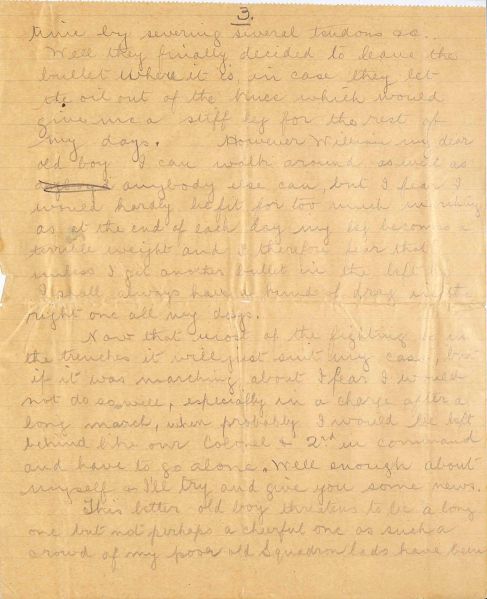 3.
time by severing several tendons so..
Well they finally decided to leave the
bullet where it is, in case they let
the oil out of the knee which would
give me a stiff leg for the rest of
my days. However William my dear
old boy I can walk around as well as
anybody else can, but I fear I
would hardly be fit for too much marching
as at the end of each day my leg becomes a
terrible weight and I therefore fear that
unless I get another bullet in the left
I shall always have a kind of drag in the
right one all my days.
Now that most of the fighting is in
the trenches it will just suit my case, but
if it was marching about I fear I would
not do so well, especially in a charge after a
long march, when probably I would be left
behind like our Colonel & 2nd in command
and have to go alone. Well enough about
myself & I'll try and give you some news.
This letter old boy threatens to be a long
one but not perhaps a cheerful one as such a
crowd of my poor old Squadron lads have been